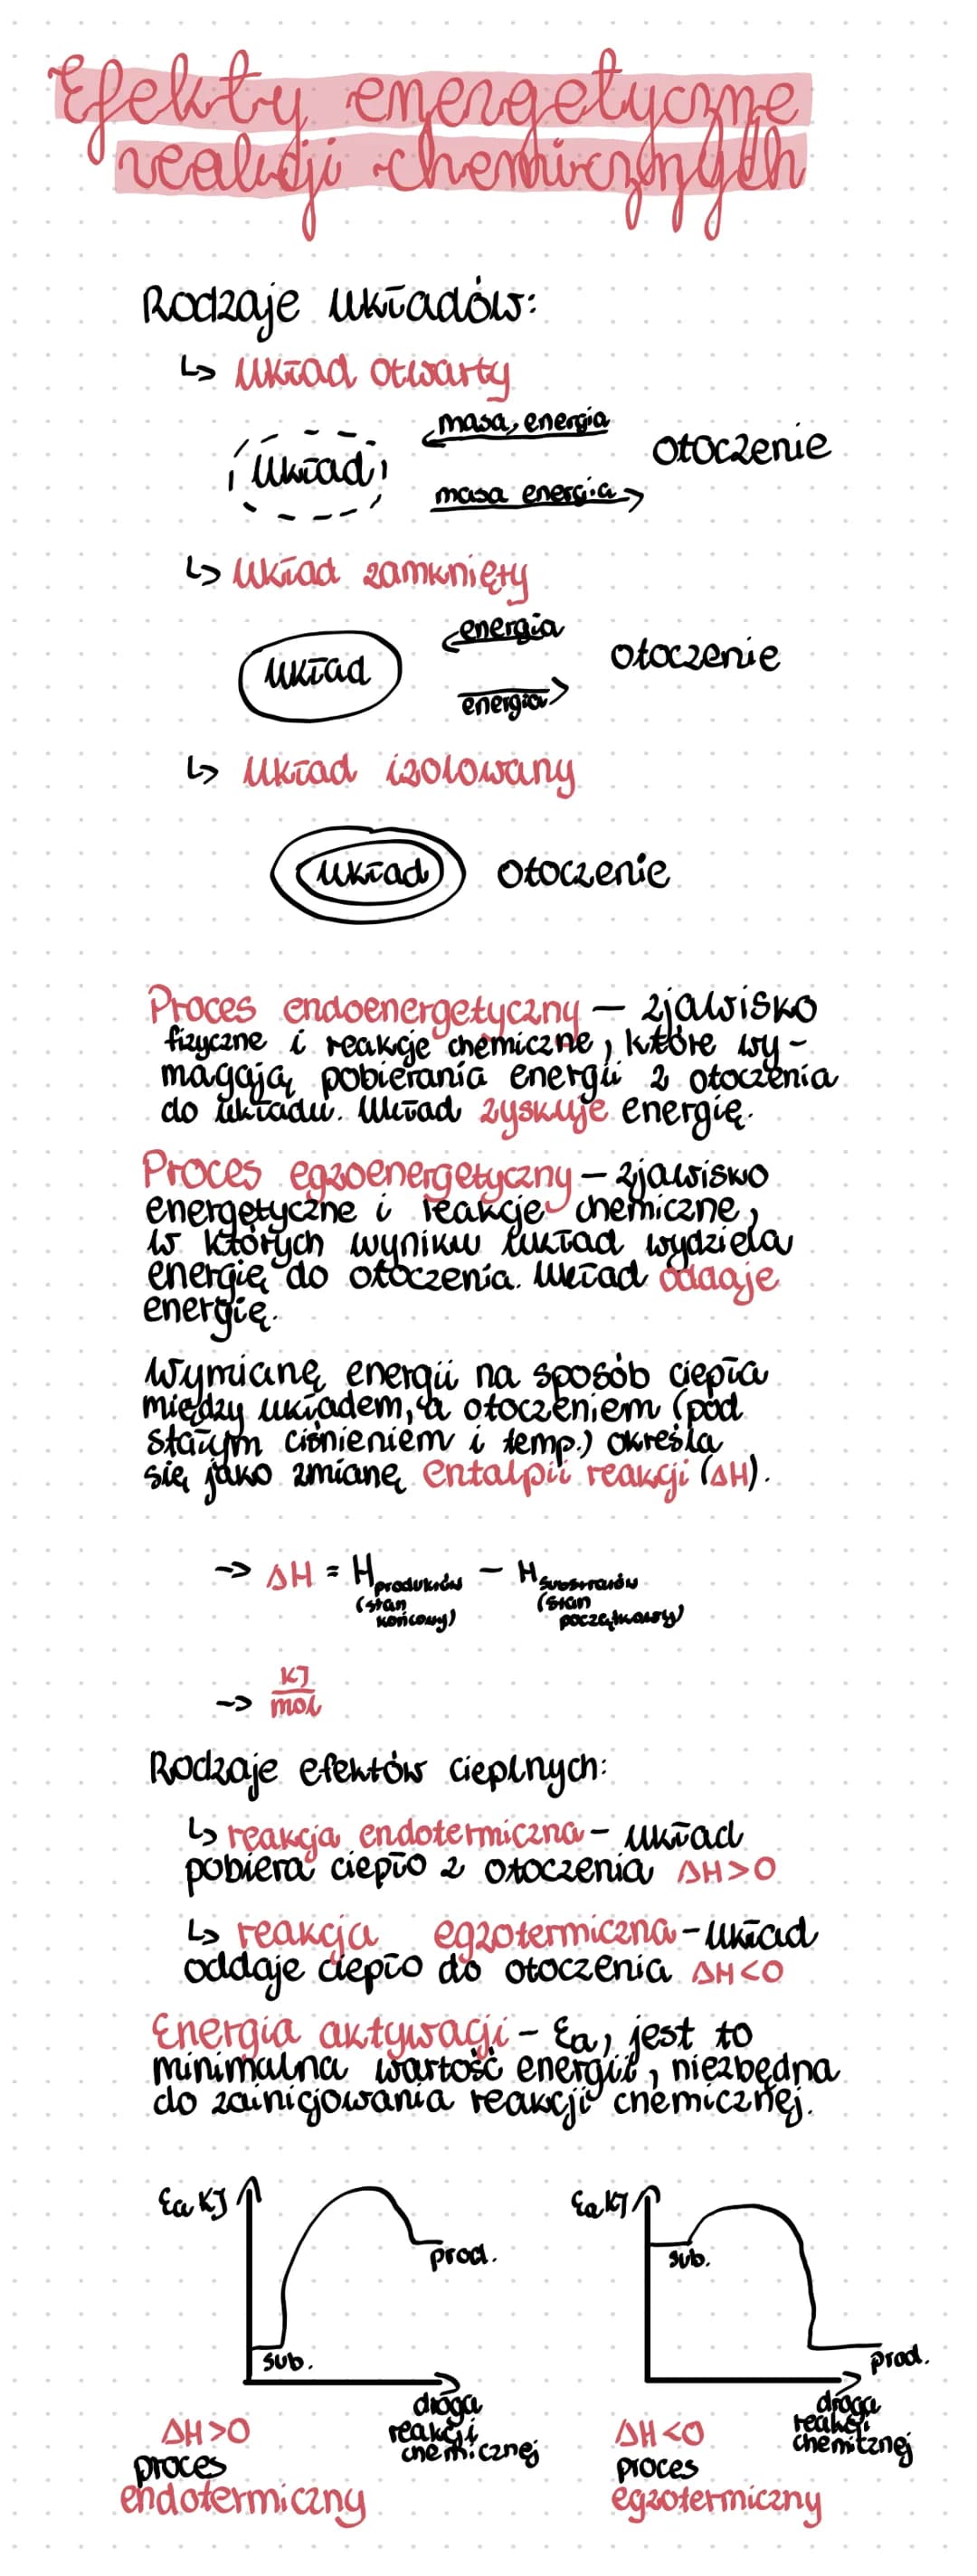 Efekty energetyczne
reakcji chemicznych
Rodzaje układów:
↳ układ otwarty
układ
masa, energia
masa energia
otoczenie
↳ układ zamknięty
układ
energia
energia
otoczenie
↳ układ izolowany
układ
otoczenie
Proces endoenergetyczny – zjawisko
fizyczne i reakcje chemiczne, które wy-
magają pobierania energii z otoczenia
do układu. Układ zyskuje energię.
Proces egzoenergetyczny – zjawisko
energetyczne i reakcje chemiczne,
w których wyniku układ wydziela
energię do otoczenia. Układ oddaje
energię.
Wymianę energii na sposób ciepła
między układem, a otoczeniem (pod
stałym ciśnieniem i temp.) określa
się jako zmianę entalpii reakcji (ΔH).
→ ΔH = H produktów – H substratów
(stan końcowy) (stan początkowy)
→ kJ/mol
Rodzaje efektów cieplnych:
↳ reakcja endotermiczna – układ
pobiera ciepło z otoczenia ΔH>0
↳ reakcja egzotermiczna – układ
oddaje ciepło do otoczenia ΔH<0
Energia aktywacji – Ea, jest to
minimalna wartość energii, niezbędna
do zainicjowania reakcji chemicznej.
Ea kJ
prod.
sub.
droga
reakcji
chemicznej
ΔH>0
proces
endotermiczny
Ea kJ
sub.
prod.
droga
reakcji
chemicznej
ΔH<0
proces
egzotermiczny